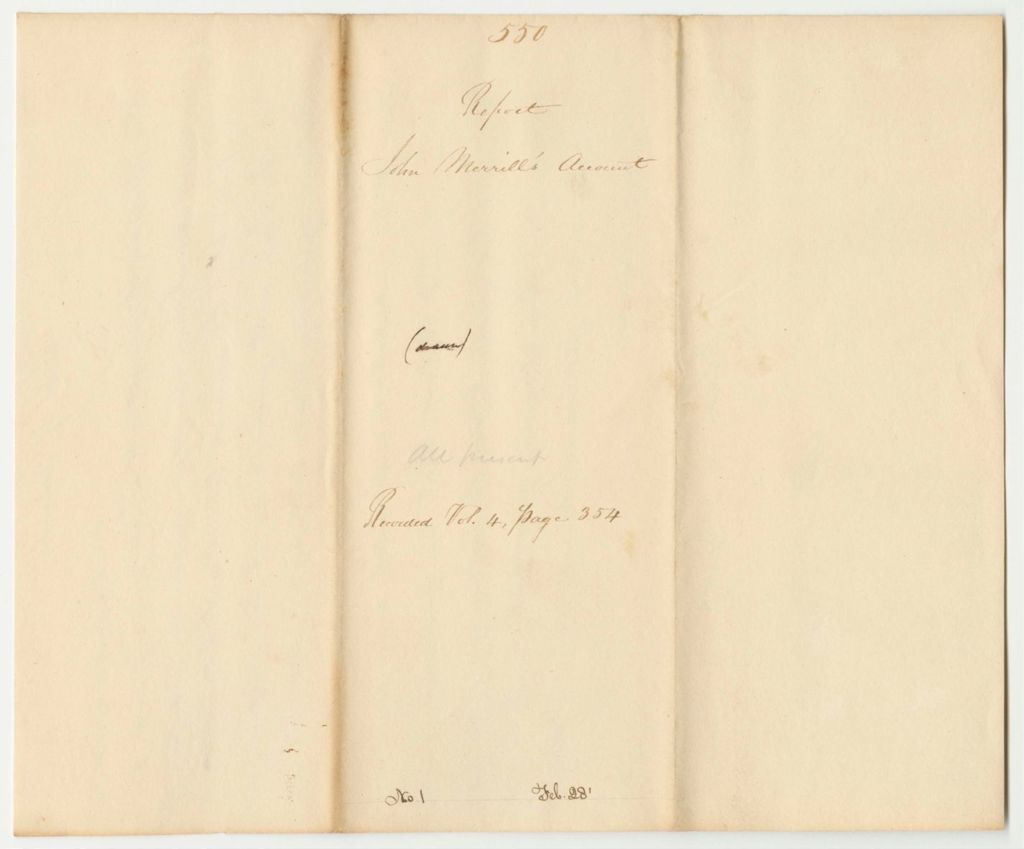 550
Report
John Merrill's Account
(drawn)
All present
Recorded Vol. 4, Page 354
No 1 Feb. 28'